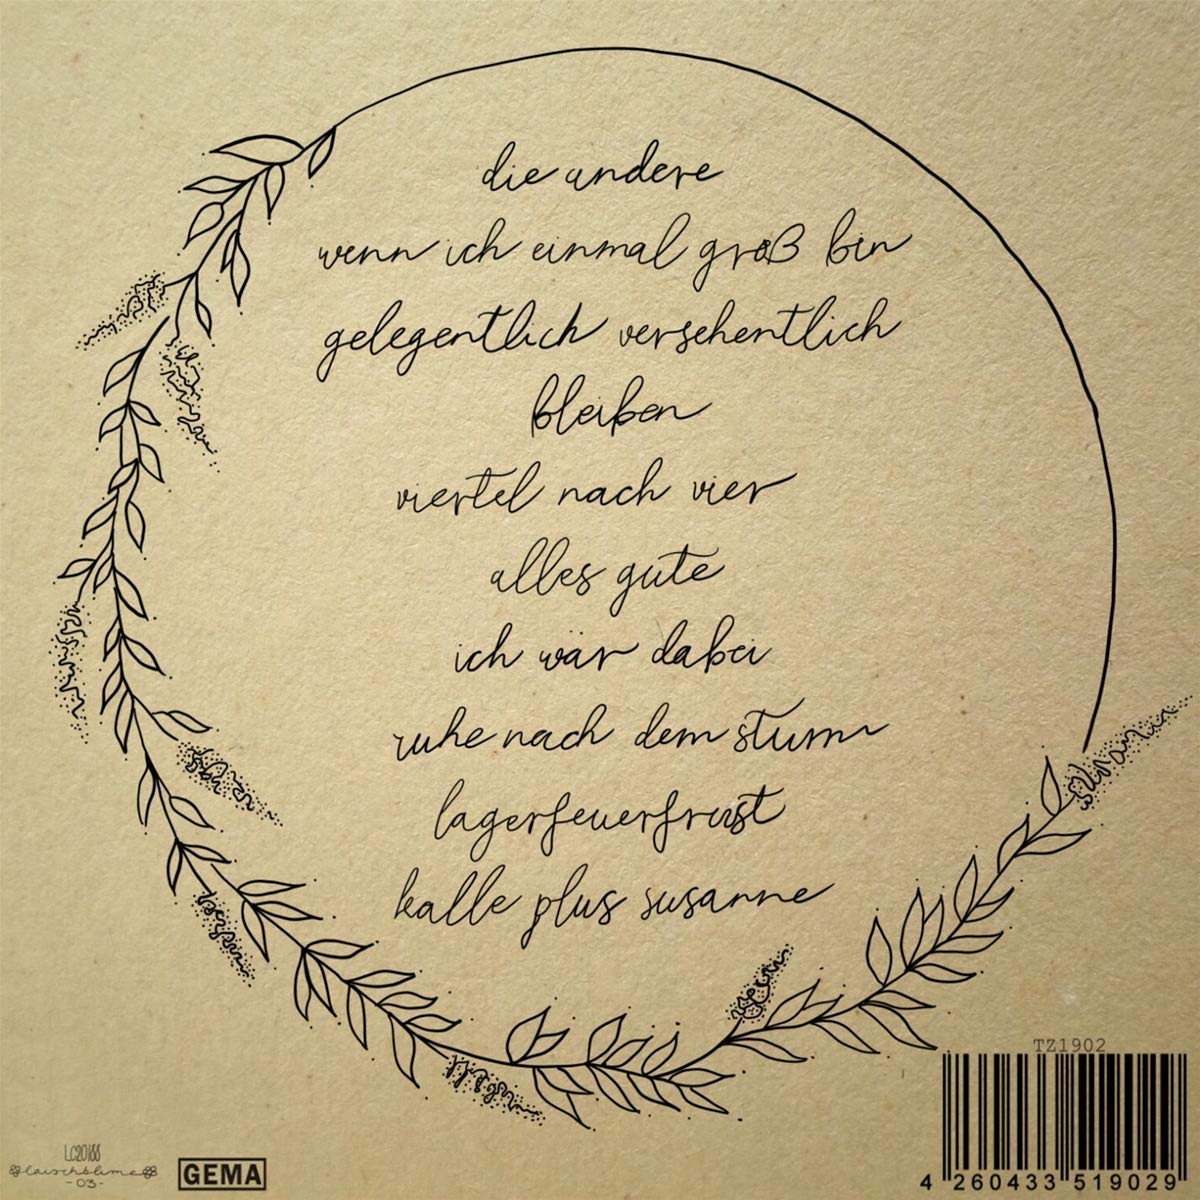 die andere
wenn ich einmal groß bin
gelegentlich versehentlich
bleiben
viertel nach vier
alles gute
ich wär dabei
ruhe nach dem sturm
lagerfeuerfrust
kalle plus susanne
TZ1902
4 260433 519029
LC20188
lauschblume
-03-
GEMA